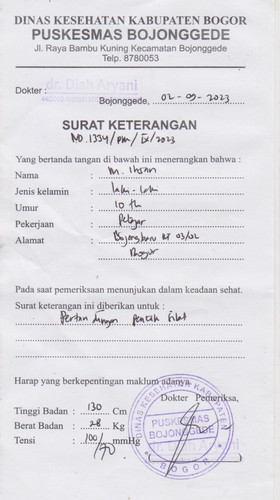 DINAS KESEHATAN KABUPATEN BOGOR
PUSKESMAS BOJONGGEDE
Jl. Raya Bambu Kuning Kecamatan Bojonggede
Telp. 8780053
Dokter : dr. Diah Aryani
Bojonggede, 02-09-2023
SURAT KETERANGAN
NO.1334/PM/IX/2023
Yang bertanda tangan di bawah ini menerangkan bahwa :
Nama : M. Ihsan
Jenis kelamin : laki-laki
Umur : 10 th
Pekerjaan : Pelajar
Alamat : Bojongbaru RT 03/02
Bogor
Pada saat pemeriksaan menunjukan dalam keadaan sehat.
Surat keterangan ini diberikan untuk :
Pertandingan Pencak Silat
Harap yang berkepentingan maklum adanya.
Dokter Pemeriksa,
Tinggi Badan : 130 Cm
Berat Badan : 28 Kg
Tensi : 100/70 mmHg
DINAS KESEHATAN KABUPATEN
PUSKESMAS
BOJONGGEDE
BOGOR